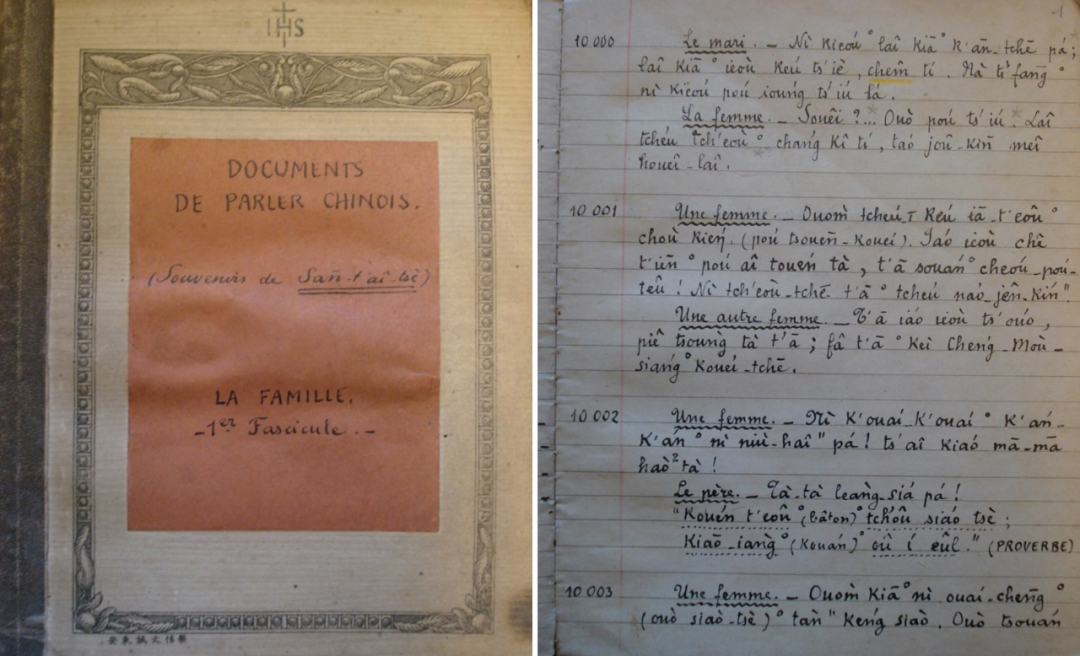 IHS
DOCUMENTS
DE PARLER CHINOIS.
(Souvenirs de Sañ-t'aî-tsè)
LA FAMILLE.
-1er Fascicule.-
1
10 000 Le mari. – Nì kieóu° laî kiā° k'ān-tchē pá;
laî kiā° ieòu keú ts'iè, chem̄ tí. Nà tí fang̃°
nì kieóu poú ioung ts'iú lá.
La femme. – Souêi ?... Ouò poú ts'iú. Laî
tcheú tch'eoù° chang kì tí, táo joû-kiñ meî
houeî-laî.
10 001 Une femme. – Ouom̀ tcheú-ī keú iā-t'eoû°
choù kień. (poú tsoueñ-koueí). Iáo ieòu chê
t'iñ° poú aî toueń tà, t'ā souán° cheóu-poú-
teû ! Nì tch'eoù-tchē t'ā° tcheú naó-jên-kiń".
Une autre femme – T'ā iáo ieòu ts'ouó,
piê tsoung̀ tà t'ā ; fâ t'ā° keì Cheng-Moù-
siang° koueí-tchē.
10 002 Une femme. – Nì k'ouaí-k'ouaí° k'áń-
k'áń° nì niù-haî" pá ! ts'aî kiaó mā-mā
haò² tà !
Le père. – Tà-tà leang̀-siá pá !
"Kouén t'eoû° (bâton)° tch'oû siáo tsè ;
Kiaō-iang̀° (kouáń)° où í eûl." (PROVERBE)
10 003 Une femme. – Ouom̀ kiā° nì ouaí-cheng̃°
(ouò siaò-tsè)° tañ" keńg siaò. Ouò tsouań